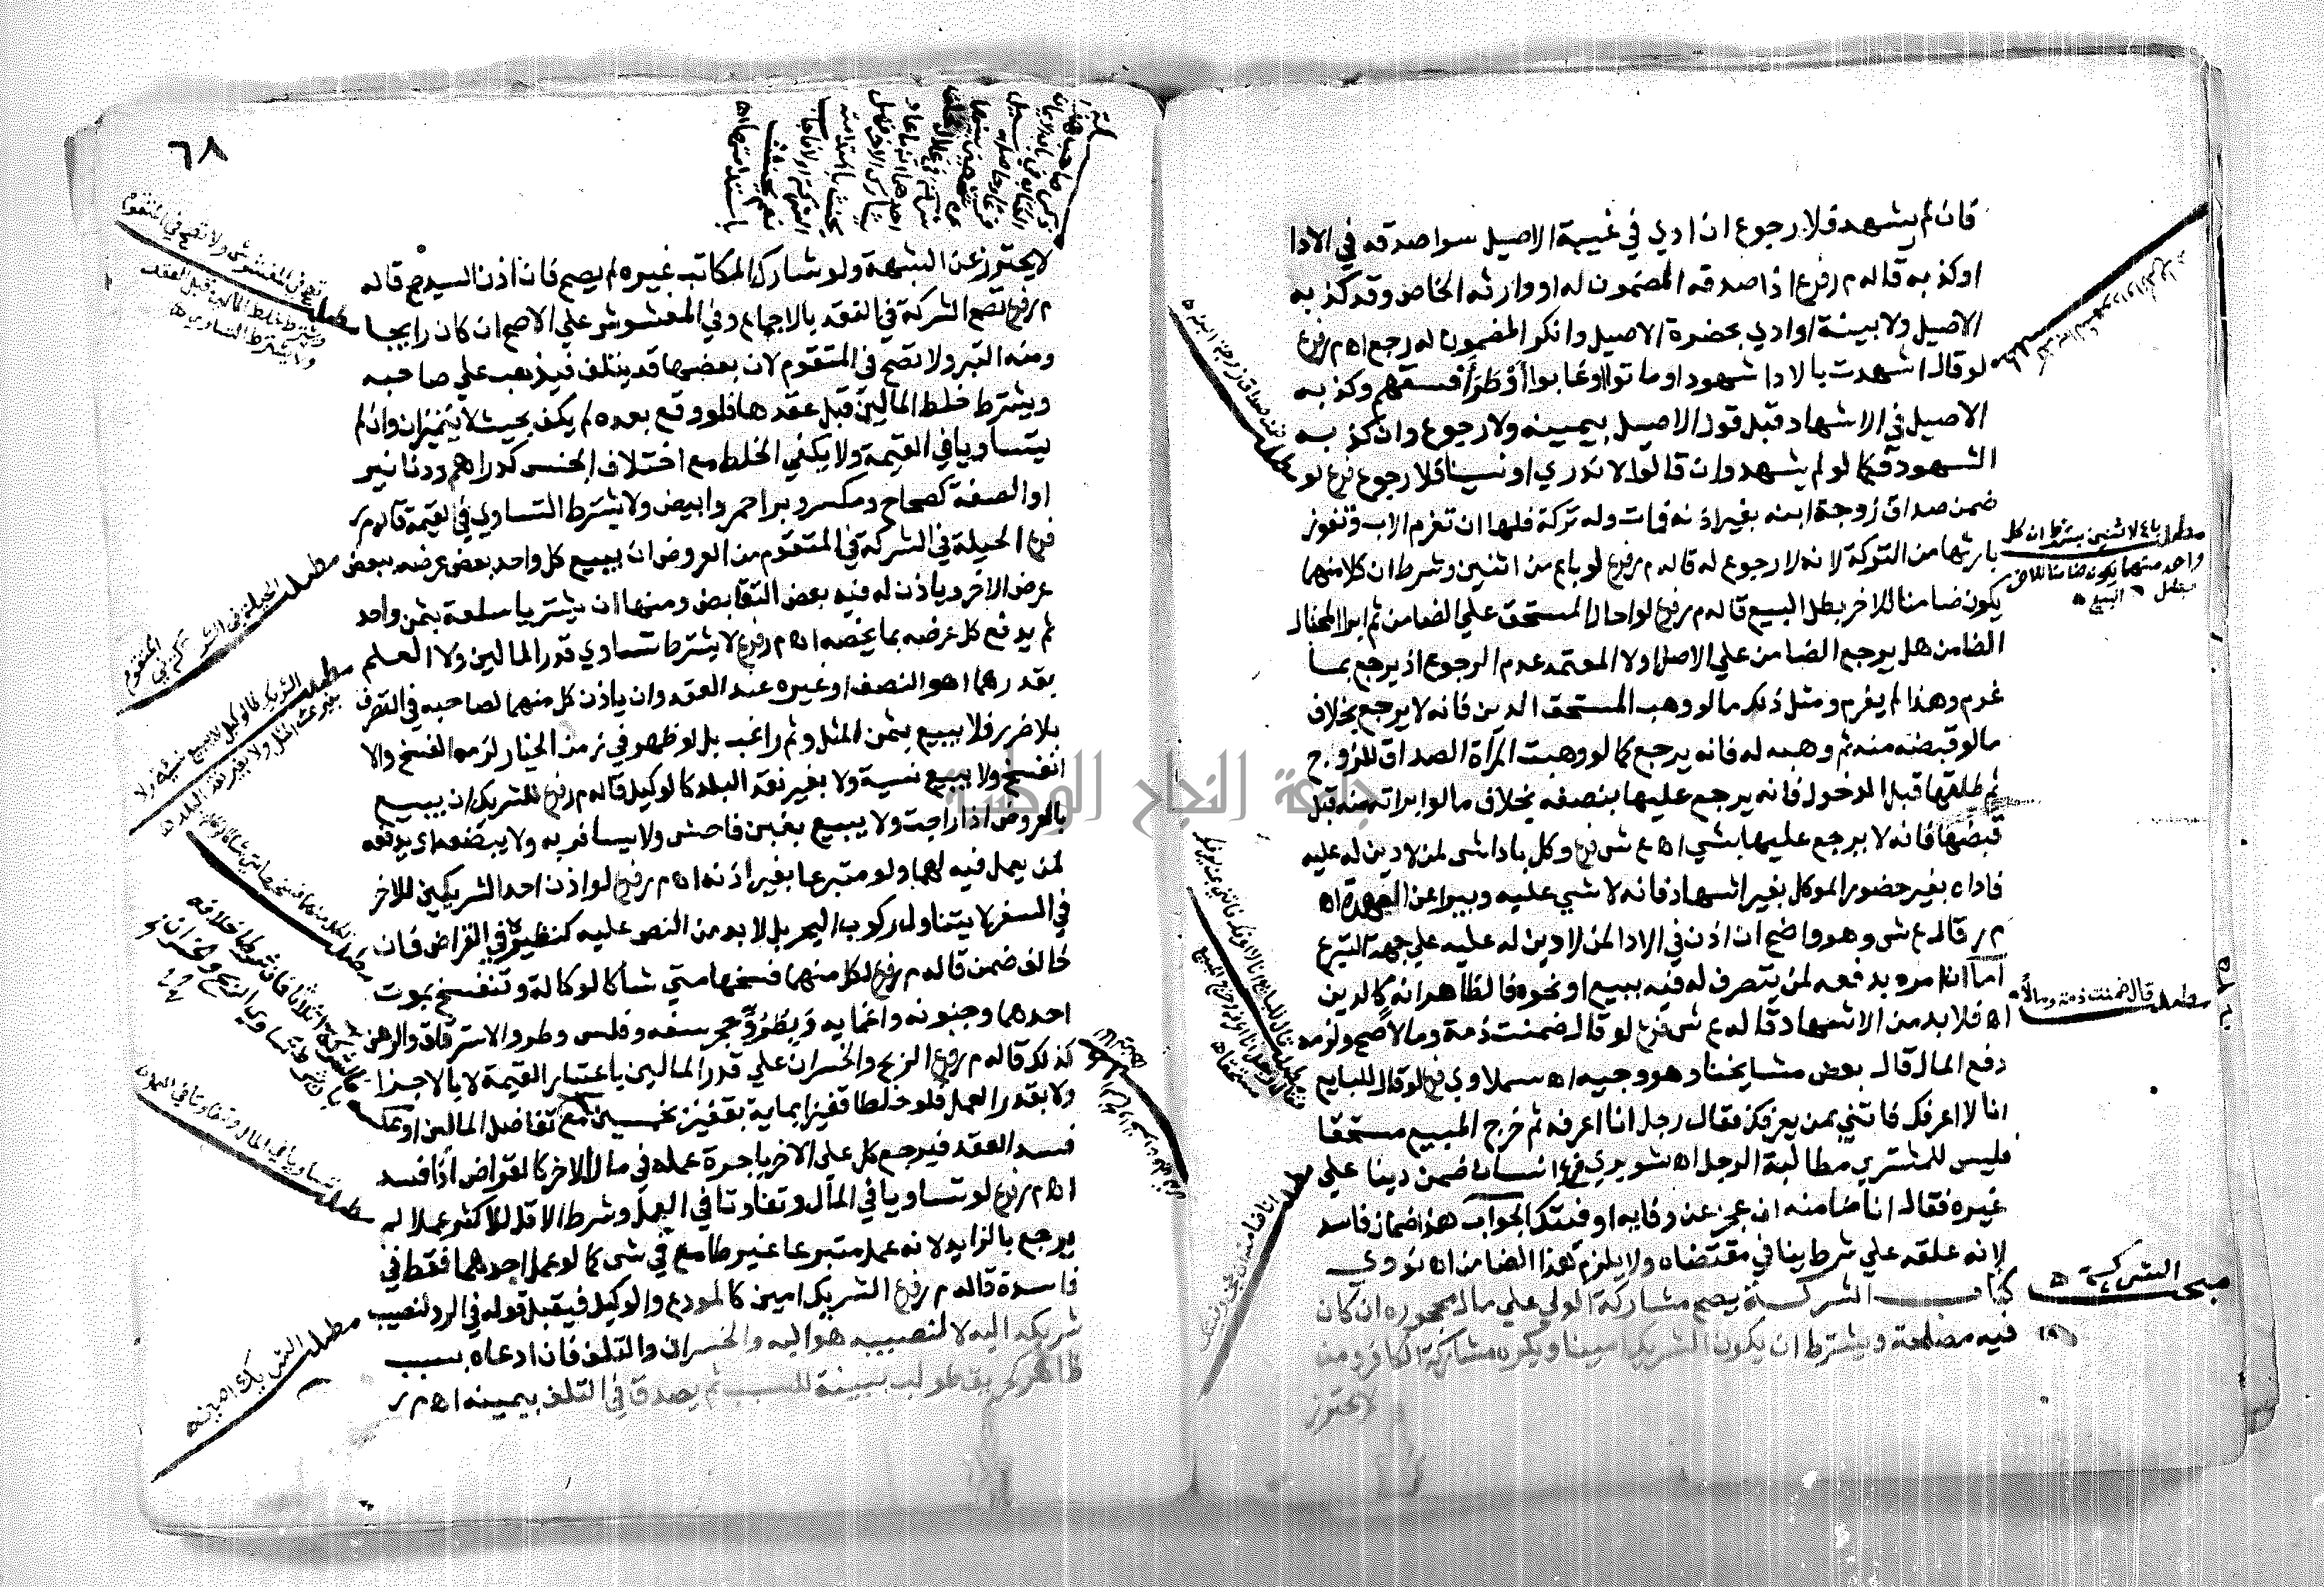 فان لم يشهد فلا رجوع ان ادي في غيبة الاصيل سوا صدقه في الادا
او كذبه قاله م ر فرع اذا صدقه المضمون له او وارثه الخاص وقد كذبه
الاصيل ولا بينة او ادي بحضرة الاصيل وانكر المضمون له رجع اه م ر فرع
لو قال اشهدت بالادا شهودا وماتوا او غابوا او طرا فسقهم وكذبه
الاصيل في الاشهاد قبل قول الاصيل بيمينه ولا رجوع وان كذبه
الشهود فكما لو لم يشهد وان قالوا لا ندري او نسينا فلا رجوع فرع لو
ضمن صداق زوجة ابنه بغير اذنه فمات وله تركة فلها ان تغرم الاب وتفوز
بارثها من التركة لانه لا رجوع له قاله م ر فرع لو باع من اثنين وشرط ان كلا منهما
يكون ضامنا للاخر بطل البيع قاله م ر فرع لو احال المستحق علي الضامن ثم ابرا المحتال
الضامن هل يرجع الضامن علي الاصل او لا المعتمد عدم الرجوع اذ يرجع بما
غرم وهذا لم يغرم ومثل ذلك ما لو وهب المستحق الدين فانه لا يرجع بخلاف
ما لو قبضه منه ثم وهبه له فانه يرجع كما لو وهبت المرأة الصداق للزوج
ثم طلقها قبل الدخول فانه يرجع عليها بنصفه بخلاف ما لو ابراته منه قبل
قبضها فانه لا يرجع عليها بشي اه ع ش فرع وكل بادا شي لمن لا دين له عليه
فاداه بغير حضور الموكل بغير اشهاد فانه لا شي عليه ويبرا عن العهدة اه
م ر قال ع ش وهو واضح ان اذن في الادا لمن لا دين له عليه علي جهة التبرع
اما اذا امره بدفعه لمن يتصرف له فيه ببيع او نحوه فالظاهر انه كالدين
اه فلا بد من الاشهاد قاله ع ش فرع لو قال ضمنت ذمة ومالا صح ولزمه
دفع المال قال بعض مشايخنا وهو وجيه اه سملاوي فرع لو قال للبايع
انا لا اعرفك فاتني بمن يعرفك فقال رجل انا اعرفه ثم خرج المبيع مستحقا
فليس للمشتري مطالبة الرجل اه شوبري فرع انسان ضمن دينا علي
غيره فقال انا ضامنه ان عجز عن وفايه او فيتك الجواب هذا ضمان فاسد
لانه علقه علي شرط ينافي مقتضاه ولا يلزم لهذا الضامن اه نووي
كتاب الشركة يصح مشاركة الولي علي مال محجوره ان كان
فيه مصلحة ويشترط ان يكون الشريك امينا ويكره مشاركة الكافر ومن
لا يحترز
مطلب باع لاثنين بشرط ان كل
واحد منهما يكون ضامنا للاخر
بطل البيع
مطلب قال ضمنت ذمة ومالا
مبحث الشركة
٦٨
لا يحترز عن الشبهة ولو شارك المكاتب غيره لم يصح فان اذن السيد صح قاله
م ر فرع تصح الشركة في النقد بالاجماع وفي المغشوش علي الاصح ان كان رايجا
ومنه التبر ولا تصح في المتقوم لان بعضها قد يتلف فيذهب علي صاحبه
ويشترط خلط المالين قبل عقدها فلو وقع بعده لم يكف بحيث لا يتميزان وان لم
يتساويا في القيمة ولا يكفي الخلط مع اختلاف الجنس كدراهم ودنانير
او الصفة كصحاح ومكسر وبر احمر وابيض ولا يشترط التساوي في القيمة قاله م ر
فرع الحيلة في الشركة في المتقوم من العروض ان يبيع كل واحد بعض عرضه ببعض
عرض الاخر وياذن له فيه بعض التقابض ومنها ان يشتريا سلعة بثمن واحد
ثم يدفع كل عرضه بما يخصه اه م ر فرع لا يشترط تساوي قدر المالين ولا العلم
بقدرهما اهو النصف او غيره عند العقد وان ياذن كل منهما لصاحبه في التصرف
بلا ضرر فلا يبيع بثمن المثل وثم راغب بل لو ظهر في زمن الخيار لزمه الفسخ والا
انفسخ ولا يبيع نسية ولا بغير نقد البلد كالوكيل قاله م ر فرع للشريك ان يبيع
بالعروض اذا راجت ولا يبيع بغبن فاحش ولا يسافر به ولا يبضعه اي يدفعه
لمن يعمل فيه لهما ولو متبرعا بغير اذنه اه م ر فرع لو اذن احد الشريكين للاخر
في السفر لا يتناول ركوب البحر بل لا بد من النص عليه كنظيره في القراض فان
خالف ضمن قاله م ر فرع لكل منهما فسخها متي شا كالوكالة وتنفسخ بموت
احدهما وجنونه واغمايه وبطرو حجر سفه وفلس وطرو الاسترقاق والرهن
كذلك قاله م ر فرع الربح والخسران علي قدر المالين باعتبار القيمة لا بالاجزا
ولا بقدر العمل فلو خلطا قفيزا بماية بقفيز بخمسين مع تفاضل المالين او عكسه
فسد العقد فيرجع كل علي الاخر باجرة عمله في مال الاخر كالقراض اذا فسد
اه م ر فرع لو تساويا في المال وتفاوتا في العمل وشرط الاقل للاكثر عملا لم
يرجع بالزايد لانه عمل متبرعا غير طامع في شي كما لو عمل احدهما فقط في
فاسدة قاله م ر فرع الشريك امين كالمودع والوكيل فيقبل قوله في الرد لنصيب
شريكه اليه لا لنصيبه هو اليه والخسران والتلف فان ادعاه بسبب
ظاهر كحريق طولب ببينة للسبب ثم يصدق في التلف بيمينه اه م ر
ويشترط خلط المالين قبل العقد
ولا يشترط التساوي
مطلب الحيلة في الشركة في المتقوم
مطلب الشريك كالوكيل لا يبيع نسية ولا
بغير ثمن المثل ولا بغير نقد البلد
مطلب تساويا في المال وتفاوتا في العمل
مطلب الشريك امين